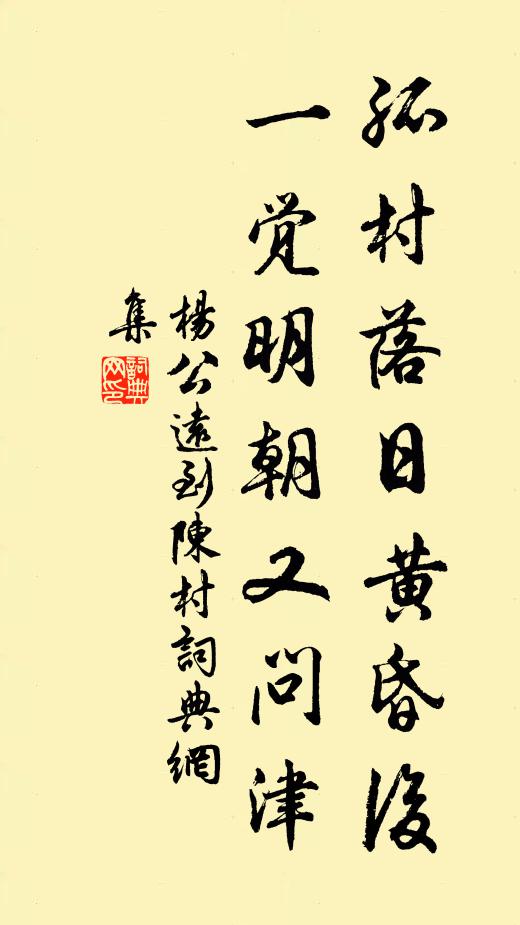 孤村落日黄昏後
一觉明朝又問津
楊公遠到陳村詞典網
集
詞典
网印